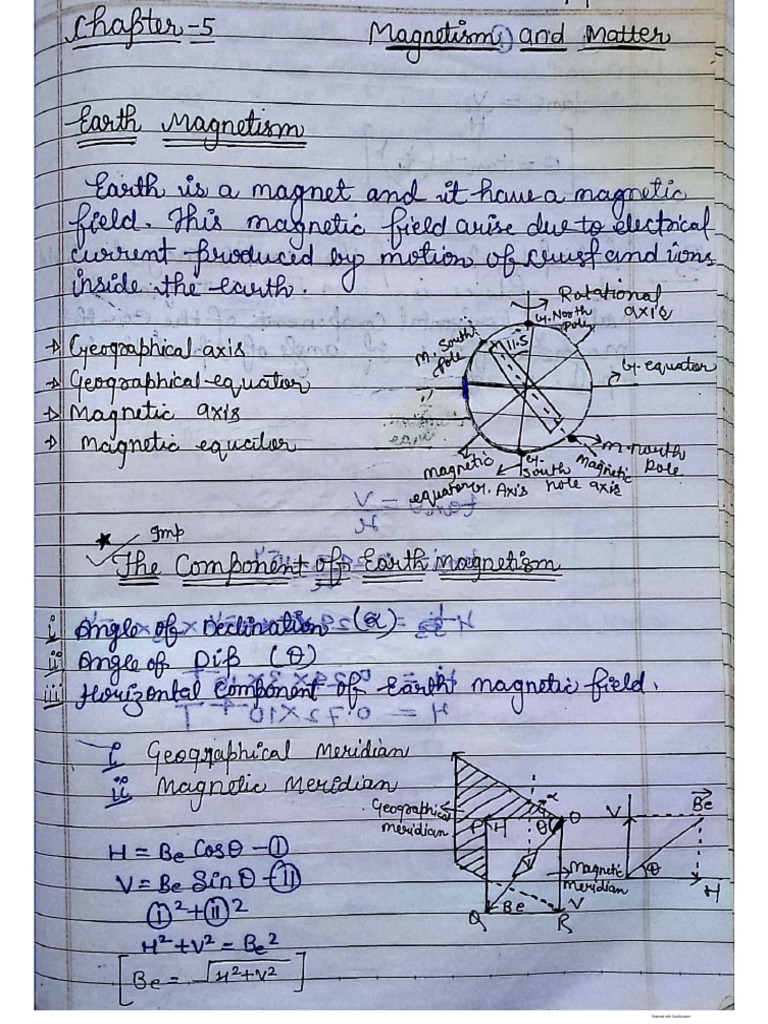 Chapter-5 Magnetism and Matter
Earth Magnetism
Earth is a magnet and it have a magnetic
field. This magnetic field arise due to electrical
current produced by motion of and ions
inside the earth.
Rotational
axis
G. North
pole
M. South
pole
11.5
→ Geographical axis
→ Geographical equator
→ Magnetic axis
→ Magnetic equator
G. equator
M. North
pole
Magnetic
axis
G.
South
pole
magnetic
equator
G. Axis
Imp
The Component of Earth Magnetism
i Angle of Declination (α)
ii Angle of Dip (θ)
iii Horizontal Component of Earth magnetic field.
i Geographical Meridian
ii Magnetic Meridian
Geographical
meridian
P H θ O
α
V Be
θ
H
Magnetic
meridian
Q Be R V
H = Be Cosθ - (I)
V = Be Sinθ - (II)
(I)² + (II)²
H² + V² = Be²
[Be = √H² + V²]
Scanned with CamScanner